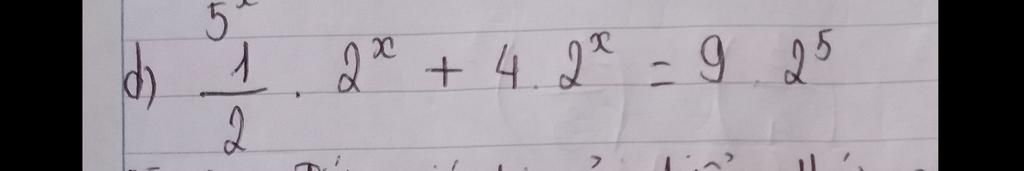 5ˣ
d) 1/2 . 2ˣ + 4 . 2ˣ = 9 . 2⁵